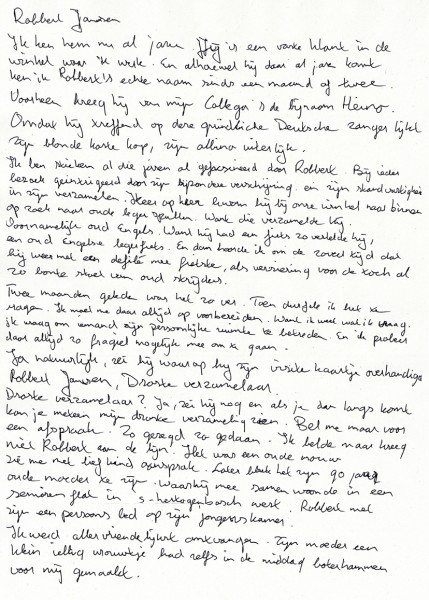 Robbert Janssen
Ik ken hem nu al jaren. Hij is een vaste klant in de
winkel waar ik werk. En alhoewel hij daar al jaren komt
ken ik Robbert's echte naam sinds een maand of twee.
Voorheen kreeg hij van mijn Collega's de bijnaam Heino.
Omdat hij treffend op deze gründliche Deutsche zanger lijkt
zijn blonde korte kop, zijn albino uiterlijk.
Ik ben stiekem al die jaren al gefascineerd door Robbert. Bij ieder
bezoek geïntrigeerd door zijn bijzondere verschijning en zijn standvastigheid
in zijn verzamelen. Keer op keer kwam hij bij onze winkel naar binnen
op zoek naar oude leger spullen. Want die verzamelde hij.
Voornamelijk oud Engels. Want hij had een fiets zo vertelde hij,
een oud Engelse legerfiets. En dan hoorde ik om de zoveel tijd dat
hij weer met een defilé mee fietste, als versiering voor de kocht al
zo bonte stoet van oud strijders.
Twee maanden geleden was het zo ver. Toen durfde ik het te
vragen. Ik moet me daar altijd op voorbereiden. Want ik weet wat ik vraag.
Ik vraag om iemand zijn persoonlijke ruimte te betreden. En ik probeer
daar altijd zo fragiel mogelijk mee om te gaan.
Ja natuurlijk, zei hij waarop hij zijn visite kaartje overhandigde
Robbert Janssen, Draske verzamelaar.
Draske verzamelaar? Ja, zei hij nog en als je dan langs komt
kan je meteen mijn dronke verzameling zien. Bel me maar voor
een afspraak. Zo gezegd zo gedaan. Ik belde maar kreeg
niet Robbert aan de lijn. Het was een oude vrouw
die me met lief kind aansprak. Later bleek het zijn 90 jarig
oude moeder te zijn. Waarbij mee samen woonde in een
senioren flat in 's-hertogenbosch west. Robbert met
zijn een persoons bed op zijn jongenskamer.
Ik werd allervriendelijkst ontvangen. Zijn moeder een
klein iellig vrouwtje had zelfs in de middag boterhammen
voor mij gemaakt.